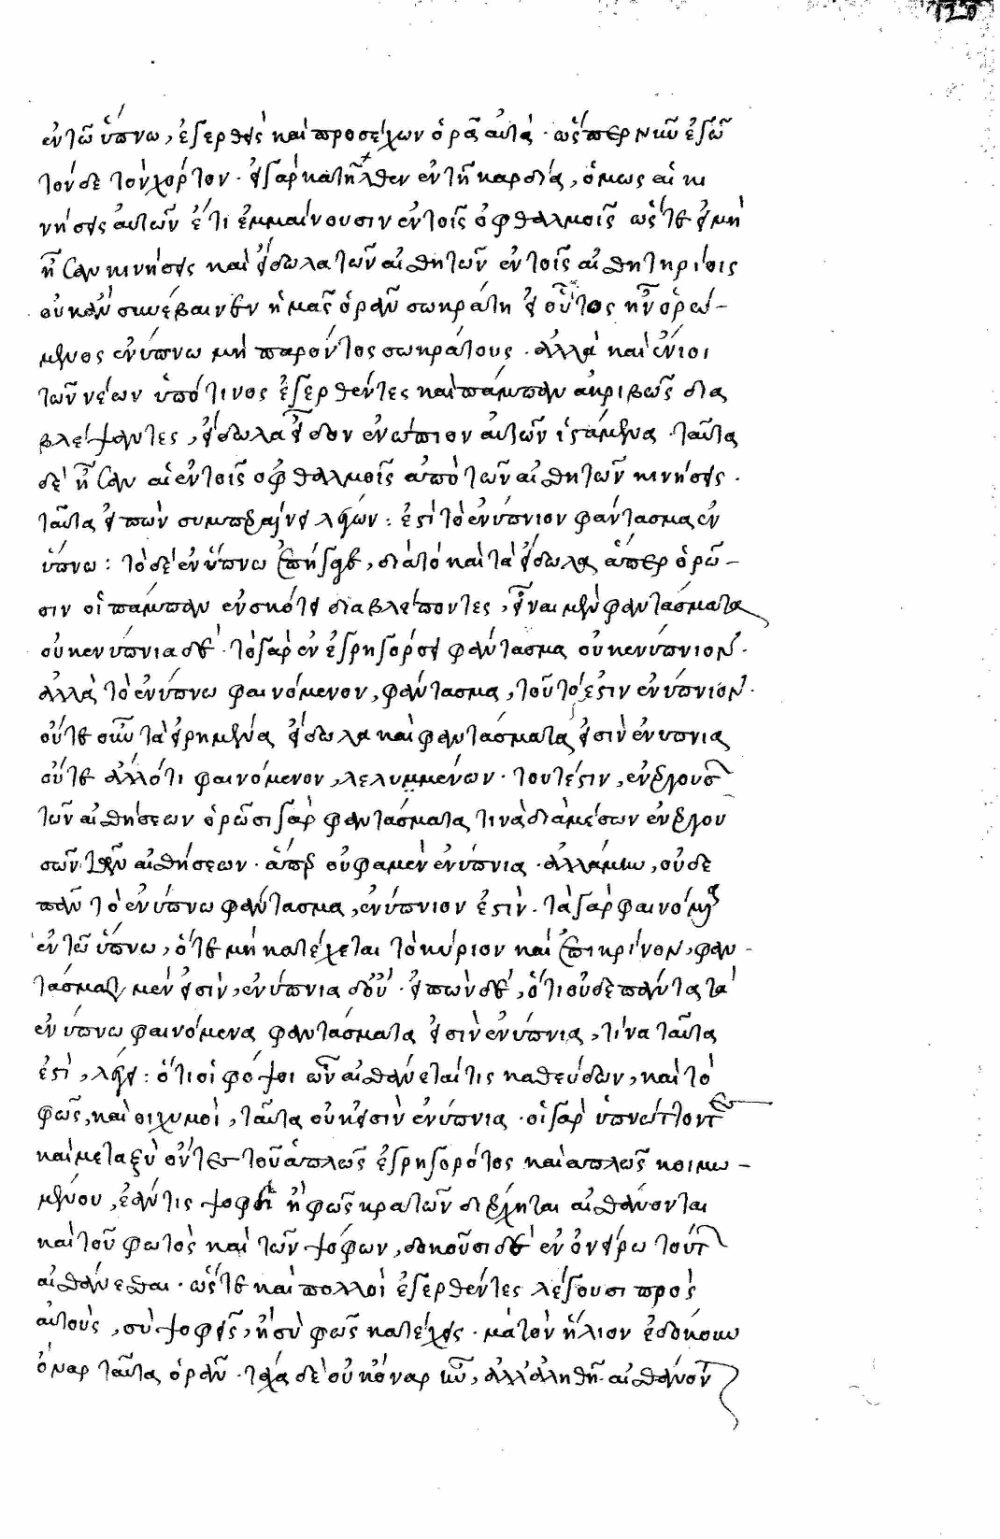 120
ἐν τῶ ὕπνω, ἐγερθεὶς καὶ προσέχων ὁρᾶ αὐτὰ · ὥσπερ νῦν ἐγὼ
τόνδε τὸν χόρτον · εἰ γὰρ κατῆλθεν ἐν τῆ καρδία, ὅμως αἱ κι
νήσεις αὐτῶν ἔτι ἐμμένουσιν ἐν τοῖς ὀφθαλμοῖς ὥστε εἰ μὴ
ἦσαν κινήσεις καὶ εἴδωλα τῶν αἰσθητῶν ἐν τοῖς αἰσθητηρίοις
οὐκ ἂν συνέβαινεν ἡμᾶς ὁρᾶν σωκράτη εἰ οὗτος ἦν ὁρώ-
μενος ἐν ὕπνω μὴ παρόντος σωκράτους · ἀλλὰ καὶ ἔνιοι
τῶν νέων ὑπό τινος ἐγερθέντες καὶ πάμπαν ἀκριβῶς δια
βλέψαντες, εἴδωλα εἶδον ἐνώπιον αὐτῶν ἱστάμενα · ταῦτα
δὲ ἦσαν αἱ ἐν τοῖς ὀφθαλμοῖς ἀπὸ τῶν αἰσθητῶν κινήσεις ·
ταῦτα εἰπὼν συμπεραίνει λέγων : ἐστὶ τὸ ἐνύπνιον φάντασμα ἐν
ὕπνω : τὸ δὲ ἐν ὕπνω , διατὸ καὶ τὰ εἴδωλα ἅπερ ὁρῶ-
σιν οἱ πάμπαν ἐν σκότει διαβλέποντες, εἶναι μὲν φαντάσματα
οὐκ ἐνύπνια δέ · τὸ γὰρ ἐν ἐγρηγόρσει φάντασμα οὐκ ἐνύπνιον ·
ἀλλὰ τὸ ἐν ὕπνω φαινόμενον, φάντασμα, τοῦτό ἐστιν ἐνύπνιον ·
οὔτε οὖν τὰ εἰρημένα εἴδωλα καὶ φαντάσματα εἰσὶν ἐνύπνια
οὔτε ἄλλό τι φαινόμενον, λελυμμένων · τουτέστιν, ἐνεργουσῶν
τῶν αἰσθήσεων ὁρῶσι γὰρ φαντάσματα τινὰ διὰ μέσων ἐνεργου
σῶν τῶν αἰσθήσεων · ἅπερ οὔ φαμεν ἐνύπνια · ἀλλὰ μὴν, οὐδὲ
πᾶν τὸ ἐν ὕπνω φάντασμα, ἐνύπνιον ἐστὶν · τὰ γὰρ φαινόμενα
ἐν τῶ ὕπνω, ὅτε μὴ κατέχεται τὸ κύριον καὶ ἐπικρίνον, φαν-
τάσματα μὲν εἰσὶν, ἐνύπνια δ' οὔ · εἰπὼν δὲ, ὅτι οὐδὲ πάντα τὰ
ἐν ὕπνω φαινόμενα φαντάσματα εἰσὶν ἐνύπνια, τίνα ταῦτα
ἐστὶ, λέγει : ὅτι οἱ ψόφοι ὧν αἰσθάνεταί τις καθεύδων, καὶ τὸ
φῶς, καὶ οἱ χυμοὶ, ταῦτα οὐκ εἰσὶν ἐνύπνια · οἱ γὰρ ὑπνώττοντες
καὶ μεταξὺ ὄντες τοῦ ἁπλῶς ἐγρηγορότος καὶ ἁπλῶς κοιμω-
μένου, ἐάν τις ψοφῆ ἢ φῶς κρατῶν διέρχηται αἰσθάνονται
καὶ τοῦ φωτὸς καὶ τῶν ψόφων, δοκοῦσι δὲ ἐν ὀνείρω τούτων
αἰσθάνεσθαι · ὥστε καὶ πολλοὶ ἐγερθέντες λέγουσι πρὸς
αὐτοὺς, σὺ ψοφεῖς, ἢ σὺ φῶς κατέχεις · μὰ τὸν ἥλιον ἐδόκουν
ὄναρ ταῦτα ὁρᾶν · τάχα δὲ οὐκ ὄναρ ἦν, ἀλλ' ἀληθὴς αἰσθάνον